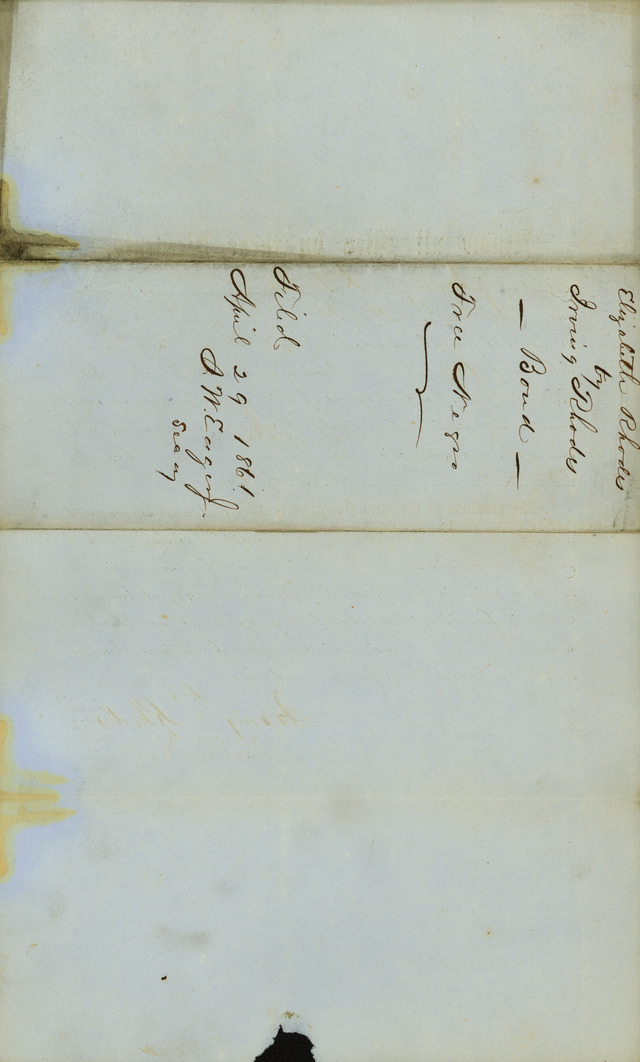 Elizabeth Rhodes
by
Irving Rhodes
— Bond —
Free Negro
Filed
April 29 1861